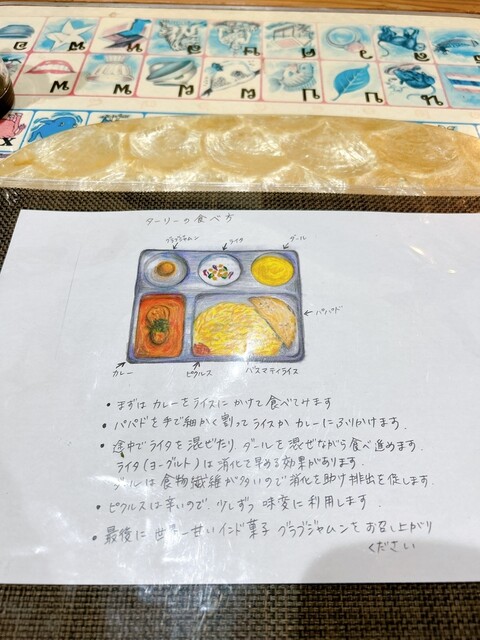 ターリーの食べ方
グラブジャムン
ライタ
ダール
パパド
カレー
ピクルス
バスマティライス
• まずは カレーをライスにかけて食べてみます
• パパドを手で細かく割ってライスか カレーにふりかけます.
• 途中でライタを混ぜたり、ダールを混ぜながら食べ進めます.
ライタ(ヨーグルト)は消化を早める効果があります.
ダールは食物繊維が多いので消化を助け排出を促します.
• ピクルスは辛いので、少しずつ味変に利用します.
• 最後に 世界一甘いインド菓子 グラブジャムンをお召し上がり
ください